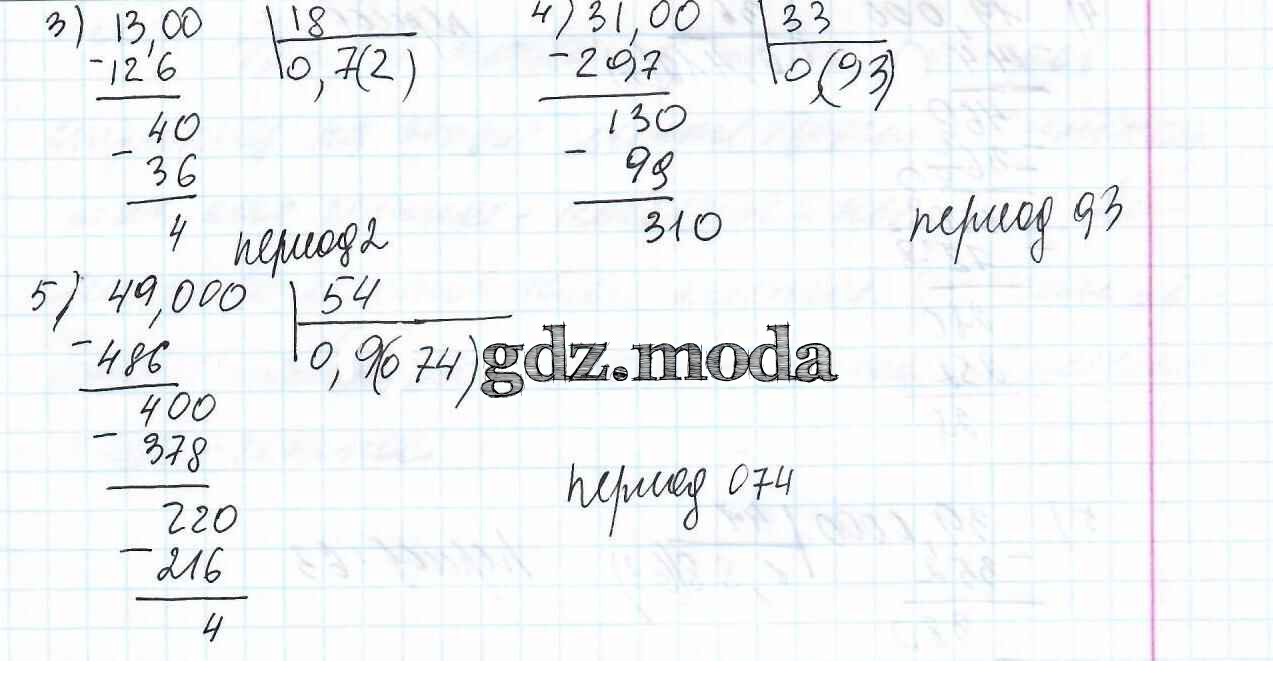 3) 13,00 18
-126 0,7(2)
40
- 36
4
период 2
4) 31,00 33
-297 0,(93)
130
- 99
310
период 93
5) 49,000 54
-486 0,9(074)
400
- 378
220
- 216
4
период 074
gdz.moda